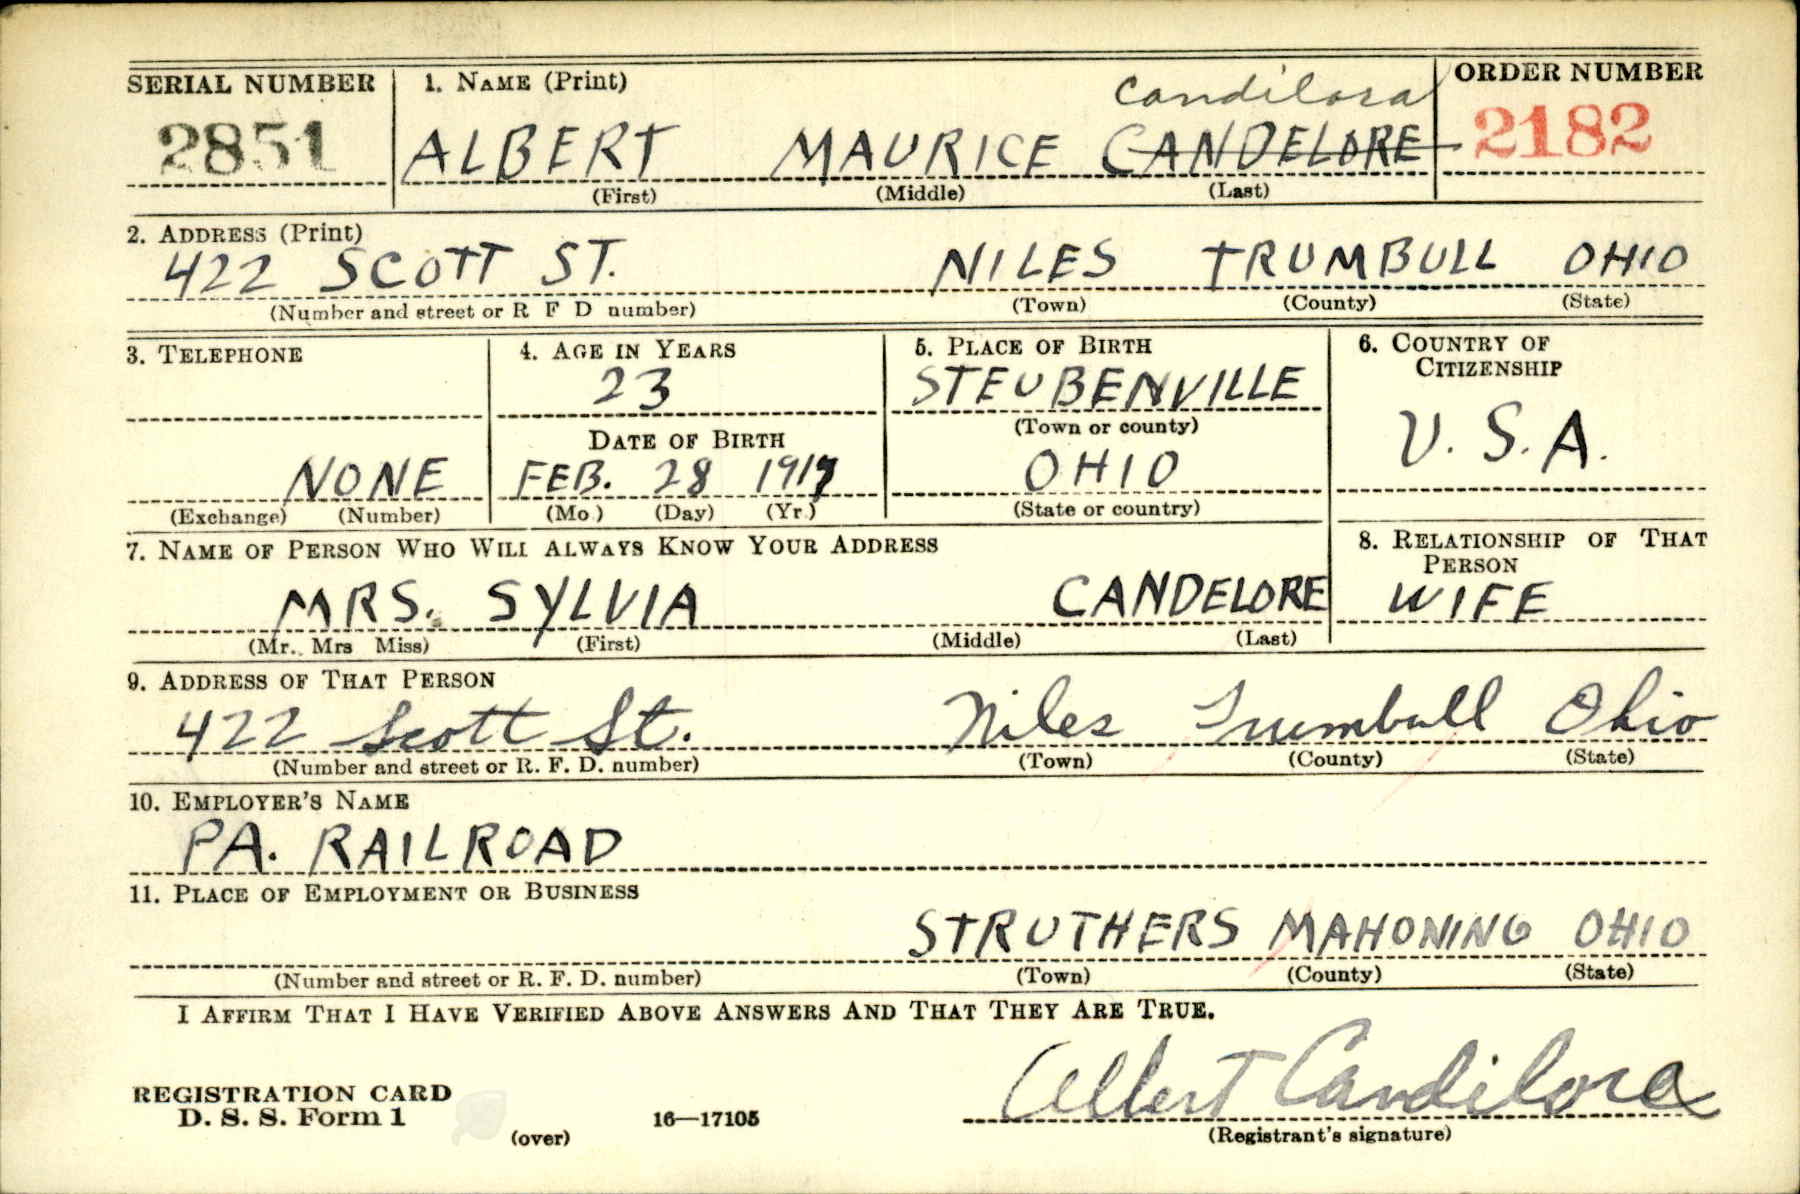 SERIAL NUMBER
1. NAME (Print)
ORDER NUMBER
Candilora
2851
ALBERT MAURICE CANDELORE
2182
(First) (Middle) (Last)
2. ADDRESS (Print)
422 SCOTT ST. NILES TRUMBULL OHIO
(Number and street or R F D number) (Town) (County) (State)
3. TELEPHONE
NONE
(Exchange) (Number)
4. AGE IN YEARS
23
DATE OF BIRTH
FEB. 28 1917
(Mo.) (Day) (Yr.)
5. PLACE OF BIRTH
STEUBENVILLE
(Town or county)
OHIO
(State or country)
6. COUNTRY OF
CITIZENSHIP
U. S. A.
7. NAME OF PERSON WHO WILL ALWAYS KNOW YOUR ADDRESS
MRS. SYLVIA CANDELORE
(Mr. Mrs Miss) (First) (Middle) (Last)
8. RELATIONSHIP OF THAT
PERSON
WIFE
9. ADDRESS OF THAT PERSON
422 Scott St. Niles Trumbull Ohio
(Number and street or R. F. D. number) (Town) (County) (State)
10. EMPLOYER'S NAME
PA. RAILROAD
11. PLACE OF EMPLOYMENT OR BUSINESS
STRUTHERS MAHONING OHIO
(Number and street or R. F. D. number) (Town) (County) (State)
I AFFIRM THAT I HAVE VERIFIED ABOVE ANSWERS AND THAT THEY ARE TRUE.
Albert Candilora
(Registrant's signature)
REGISTRATION CARD
D. S. S. Form 1
(over)
16—17105